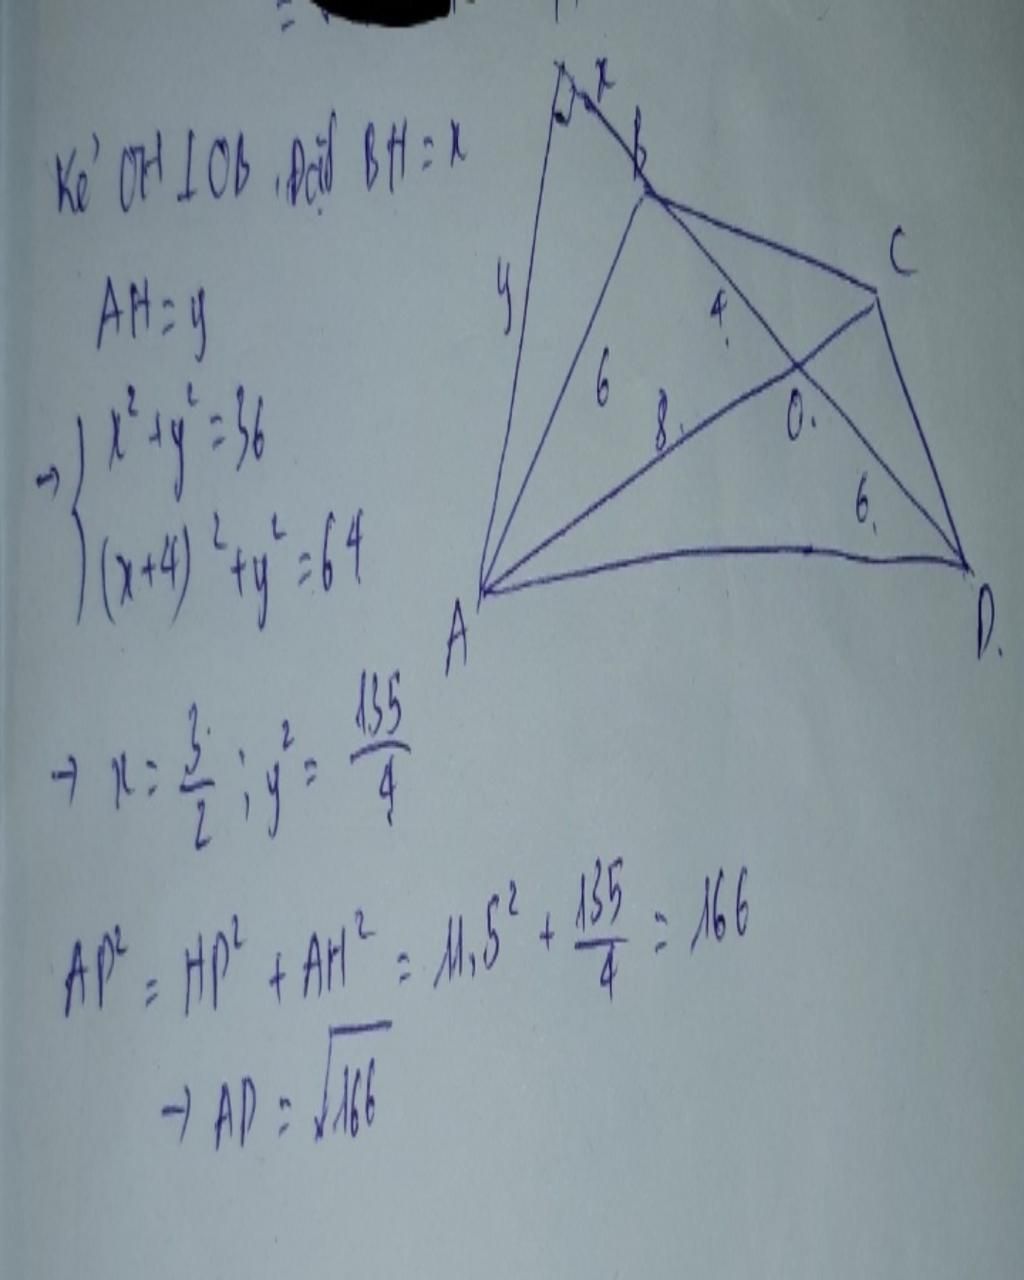 Kẻ OH ⊥ OB. Đặt BH = x
AH = y
→ { x² + y² = 36
(x+4)² + y² = 64
→ x = 3/2 ; y² = 135/4
AD² = HD² + AH² = 11,5² + 135/4 = 166
→ AD = √166
x
B
C
y
4
6
8
O
6
A
D